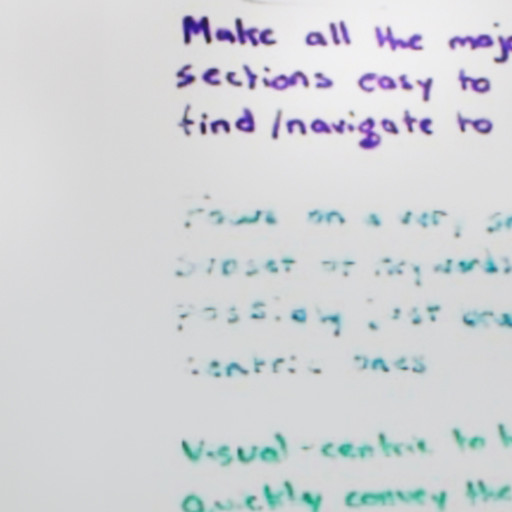 Make all the majo
sections easy to
find / navigate to
Focus on a very, sm
subset of keywords
possibly just
centric ones
Visual-centric to h
quickly convey the